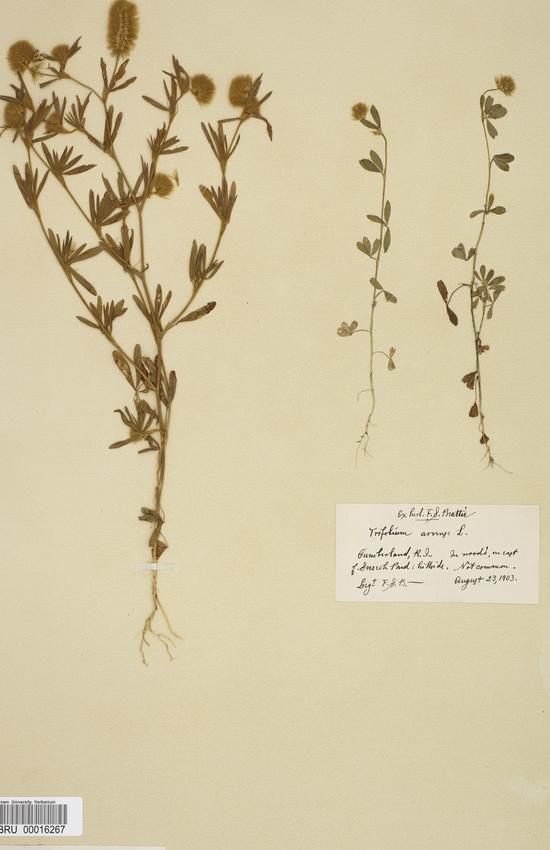 Ex herb. F. S. Beattie
Trifolium arvense L.
Cumberland, R. I. In woods, on east
of Sneech Pond: hillside. Not common.
Legt F. S. B.— August 23, 1903.
rown University Herbarium
BRU 00016267